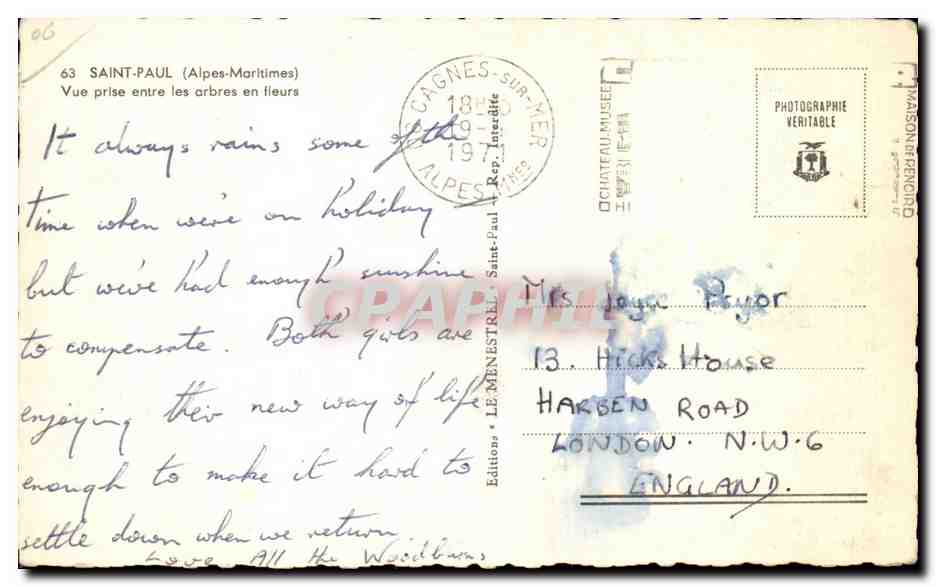 06
63 SAINT-PAUL (Alpes-Maritimes)
Vue prise entre les arbres en fleurs
It always rains some of the
time when we're on holiday
but we've had enough sunshine
to compensate. Both girls are
enjoying their new way of life
enough to make it hard to
settle down when we return.
Love All the Woodburns
CAGNES-SUR-MER
18H
19-
1971
ALPES-MMES
CHATEAU-MUSEE
MAISON DE RENOIR
PHOTOGRAPHIE
VÉRITABLE
Editions « LE MENESTREL - Saint-Paul Rep. Interdite
CPAPHIL
Mrs Pryor
13. Hicks House
HARBEN ROAD
LONDON. N.W.6
ENGLAND.